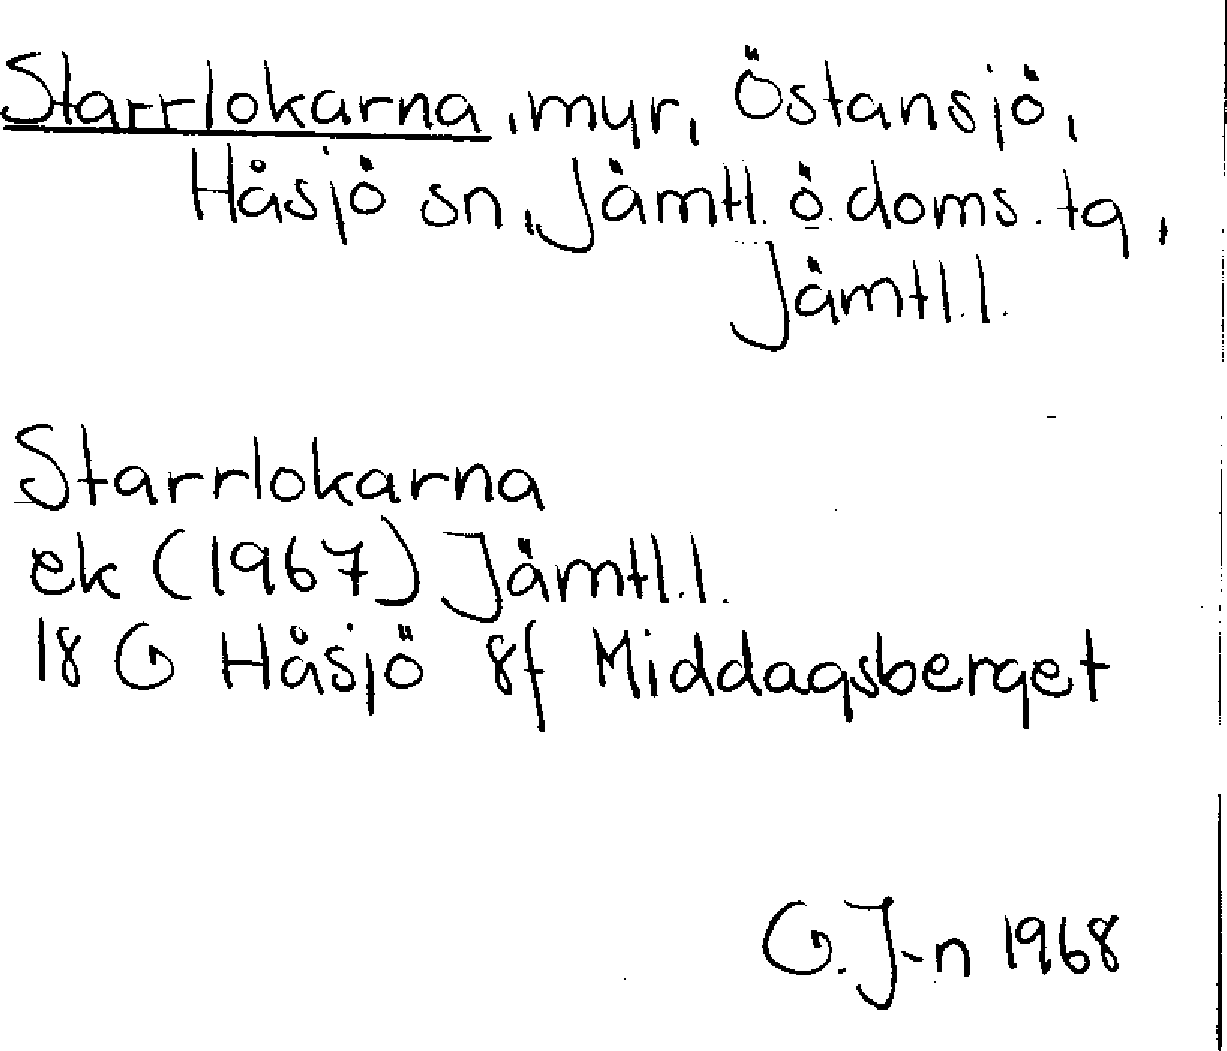 Starrlokarna, myr, Östansjö,
Håsjö sn, Jämtl. ö. doms. tg,
Jämtl. l.
Starrlokarna
ek (1967) Jämtl. l.
18 G Håsjö 8f Middagsberget
G. J-n 1968